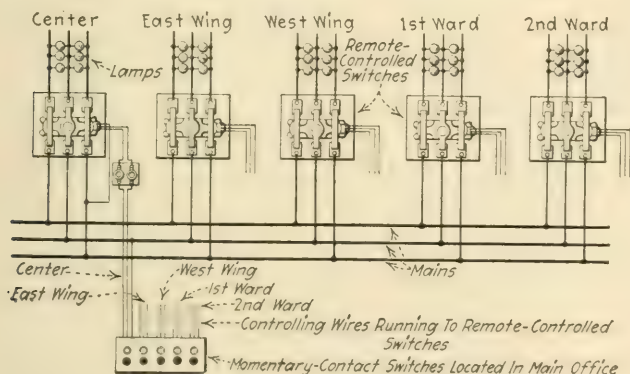 Center
East Wing
West Wing
1st Ward
2nd Ward
Lamps
Remote-
Controlled
Switches
Center
West Wing
East Wing
1st Ward
2nd Ward
Mains
Controlling Wires Running To Remote-Controlled
Switches
Momentary-Contact Switches Located In Main Office